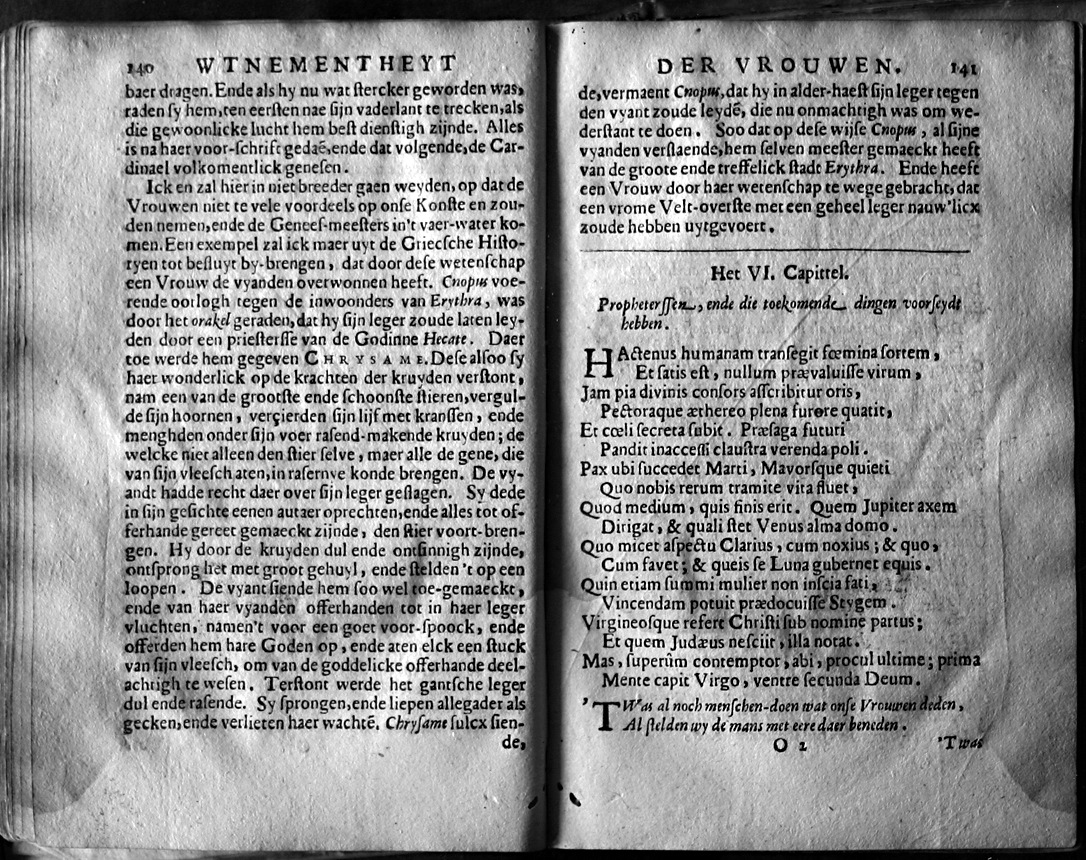 140 WTNEMENTHEYT
baer dragen. Ende als hy nu wat stercker geworden was,
raden sy hem, ten eersten nae sijn vaderlant te trecken, als
die gewoonlicke lucht hem best dienstigh zijnde. Alles
is na haer voor-schrift gedaē, ende dat volgende, de Car-
dinael volkomentlick genesen.
Ick en zal hier in niet breeder gaen weyden, op dat de
Vrouwen niet te vele voordeels op onse Konste en zou-
den nemen, ende de Genees-meesters in't vaer-water ko-
men. Een exempel zal ick maer uyt de Griecsche Histo-
ryen tot besluyt by-brengen, dat door dese wetenschap
een Vrouw de vyanden overwonnen heeft. Cnopus voe-
rende oorlogh tegen de inwoonders van Erythra, was
door het orakel geraden, dat hy sijn leger zoude laten ley-
den door een priesterſſe van de Godinne Hecate. Daer
toe werde hem gegeven CHRYSAME. Dese alsoo sy
haer wonderlick op de krachten der kruyden verstont,
nam een van de grootste ende schoonste stieren, vergul-
de sijn hoornen, verçierden sijn lijf met kranssen, ende
menghden onder sijn voer rasend-makende kruyden; de
welcke niet alleen den stier selve, maer alle de gene, die
van sijn vleesch aten, in rasernye konde brengen. De vy-
andt hadde recht daer over sijn leger geslagen. Sy dede
in sijn gesichte eenen autaer oprechten, ende alles tot of-
ferhande gereet gemaeckt zijnde, den stier voort-bren-
gen. Hy door de kruyden dul ende ontsinnigh zijnde,
ontsprong het met groot gehuyl, ende stelden 't op een
loopen. De vyant siende hem soo wel toe-gemaeckt,
ende van haer vyanden offerhanden tot in haer leger
vluchten, namen't voor een goet voor-spoock, ende
offerden hem hare Goden op, ende aten elck een stuck
van sijn vleesch, om van de goddelicke offerhande deel-
achtigh te wesen. Terstont werde het gantsche leger
dul ende rasende. Sy sprongen, ende liepen allegader als
gecken, ende verlieten haer wachtē. Chrysame sulcx sien-
de,
DER VROUWEN. 141
de, vermaent Cnopus, dat hy in alder-haest sijn leger tegen
den vyant zoude leydē, die nu onmachtigh was om we-
derstant te doen. Soo dat op dese wijse Cnopus, al sijne
vyanden verslaende, hem selven meester gemaeckt heeft
van de groote ende treffelick stadt Erythra. Ende heeft
een Vrouw door haer wetenschap te wege gebracht, dat
een vrome Velt-overste met een geheel leger nauw'licx
zoude hebben uytgevoert.
Het VI. Capittel.
Propheterssen, ende die toekomende dingen voorseydt
hebben.
HActenus humanam transegit fœmina sortem,
Et satis est, nullum prævaluisse virum,
Jam pia divinis consors asscribitur oris,
Pectoraque æthereo plena furore quatit,
Et cœli secreta subit. Præsaga futuri
Pandit inaccessi claustra verenda poli.
Pax ubi succedet Marti, Mavorsque quieti
Quo nobis rerum tramite vita fluet,
Quod medium, quis finis erit. Quem Jupiter axem
Dirigat, & quali stet Venus alma domo.
Quo micet aspectu Clarius, cum noxius; & quo,
Cum favet; & queis se Luna gubernet equis.
Quin etiam summi mulier non inscia fati,
Vincendam potuit prædocuisse Stygem.
Virgineosque refert Christi sub nomine partus;
Et quem Judæus nesciit, illa notat.
Mas, superûm contemptor, abi, procul ultime; prima
Mente capit Virgo, ventre secunda Deum.
'TWas al noch menschen-doen wat onse Vrouwen deden,
Al stelden wy de mans met eere daer beneden.
O 2 'Twas